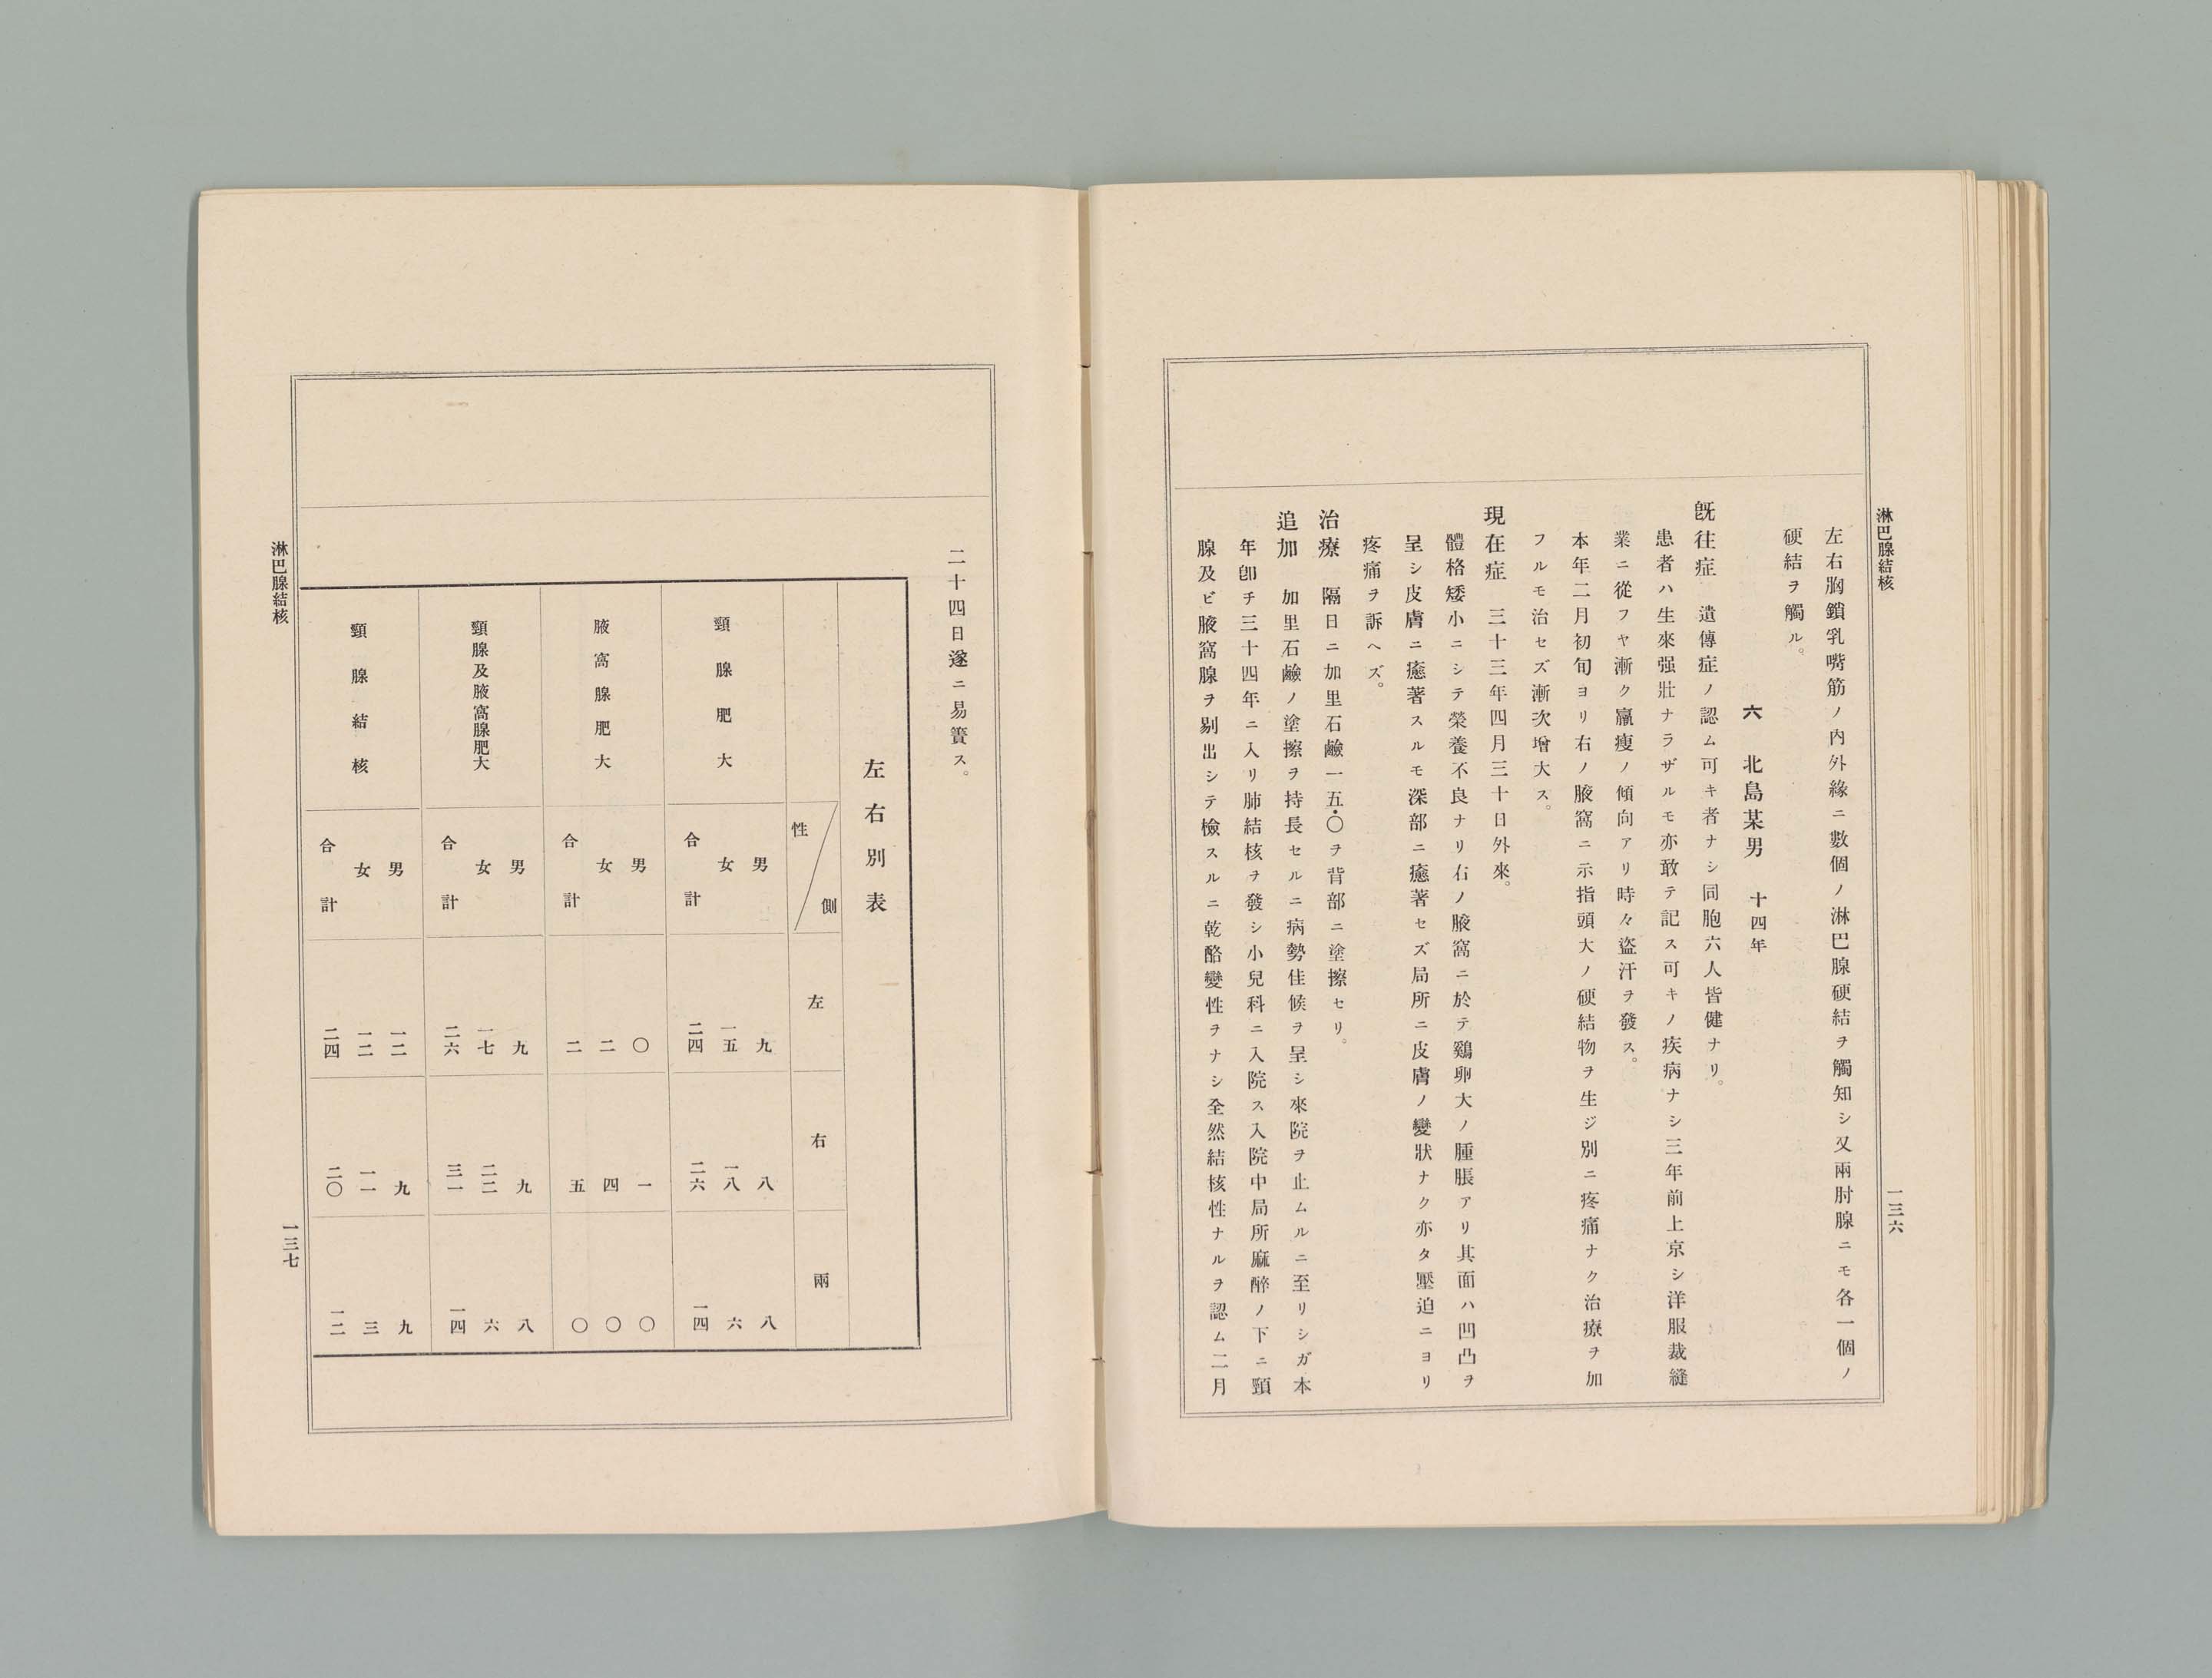 淋巴腺結核
一三六
左右胸鎖乳嘴筋ノ內外緣ニ數個ノ淋巴腺硬結ヲ觸知シ又兩肘腺ニモ各一個ノ
硬結ヲ觸ル。
六　北島某男　十四年
旣往症　遺傳症ノ認ム可キ者ナシ同胞六人皆健ナリ。
患者ハ生來强壯ナラザルモ亦敢テ記ス可キノ疾病ナシ三年前上京シ洋服裁縫
業ニ從フヤ漸ク羸瘦ノ傾向アリ時々盜汗ヲ發ス。
本年二月初旬ヨリ右ノ腋窩ニ示指頭大ノ硬結物ヲ生ジ別ニ疼痛ナク治療ヲ加
フルモ治セズ漸次增大ス。
現在症　三十三年四月三十日外來。
體格矮小ニシテ榮養不良ナリ右ノ腋窩ニ於テ鷄卵大ノ腫脹アリ其面ハ凹凸ヲ
呈シ皮膚ニ癒著スルモ深部ニ癒著セズ局所ニ皮膚ノ變狀ナク亦タ壓迫ニヨリ
疼痛ヲ訴ヘズ。
治療　隔日ニ加里石鹼一五・〇ヲ背部ニ塗擦セリ。
追加　加里石鹼ノ塗擦ヲ持長セルニ病勢佳候ヲ呈シ來院ヲ止ムルニ至リシガ本
年卽チ三十四年ニ入リ肺結核ヲ發シ小兒科ニ入院ス入院中局所麻醉ノ下ニ頸
腺及ビ腋窩腺ヲ剔出シテ檢スルニ乾酪變性ヲナシ全然結核性ナルヲ認ム二月
二十四日遂ニ易簀ス。
左右別表
性　側　左　右　兩
頸腺肥大
男　九　八　八
女　一五　一八　六
合計　二四　二六　一四
腋窩腺肥大
男　〇　一　〇
女　二　四　〇
合計　二　五　〇
頸腺及腋窩腺肥大
男　九　九　八
女　一七　二二　六
合計　二六　三一　一四
頸腺結核
男　一二　九　九
女　一二　一一　三
合計　二四　二〇　一二
淋巴腺結核
一三七